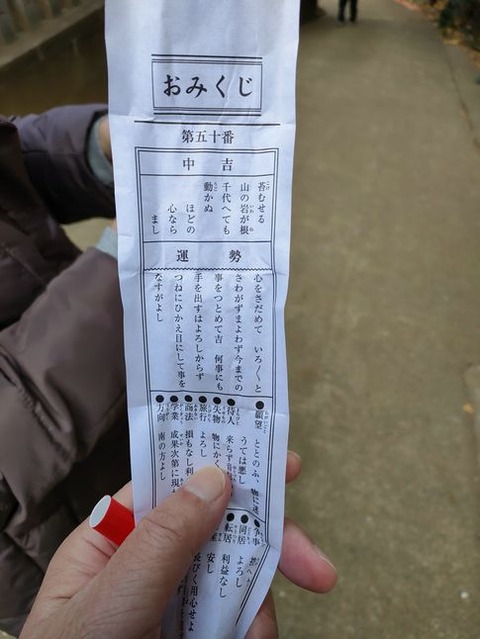 おみくじ
第五十番
中吉
苔むせる
山の岩が根
千代へても
動かぬ
ほどの
心なら
まし
運勢
心をさだめて いろ〳〵と
さわがずまよわず今までの
事をつとめて吉 何事にも
手を出すはよろしからず
つねにひかえ目にして事を
なすがよし
●願望 ととのふ、物に迷
うては悪し
●待人 来らず
●失物 物にかく
●旅行 よろし
●商法 損もなし利
●学業 成果次第に現
●方向 南の方よし
●争事
よろし
●同居 利益なし
●転居 安し
長びく用心せよ